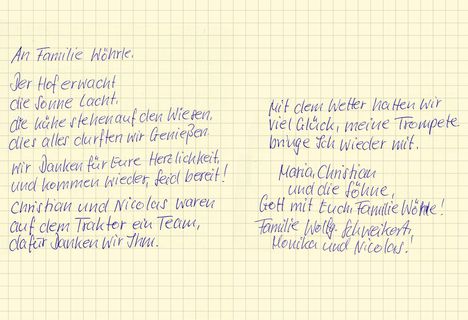 An Familie Wöhrle.
Der Hof erwacht
die Sonne Lacht,
die Kühe stehen auf den Wiesen,
dies alles durften wir Genießen
wir Danken für Eure Herzlichkeit,
und kommen wieder, seid bereit!
Christian und Nicolas waren
auf dem Traktor ein Team,
dafür Danken wir Ihm.
Mit dem Wetter hatten wir
viel Glück, meine Trompete
bringe Ich wieder mit.
Maria, Christian
und die Söhne,
Gott mit Euch, Familie Wöhrle!
Familie Wolfg. Schweikert,
Monika und Nicolas!